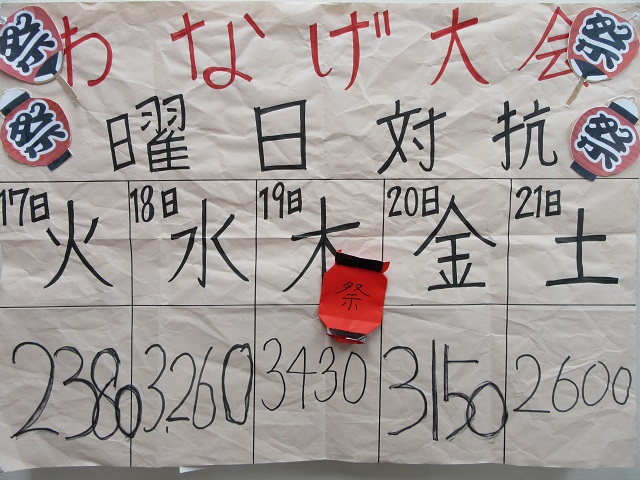 祭 わなげ大会 祭
祭 曜日対抗 祭
17日 火 18日 水 19日 木 20日 金 21日 土
祭
2380 3260 3430 3150 2600